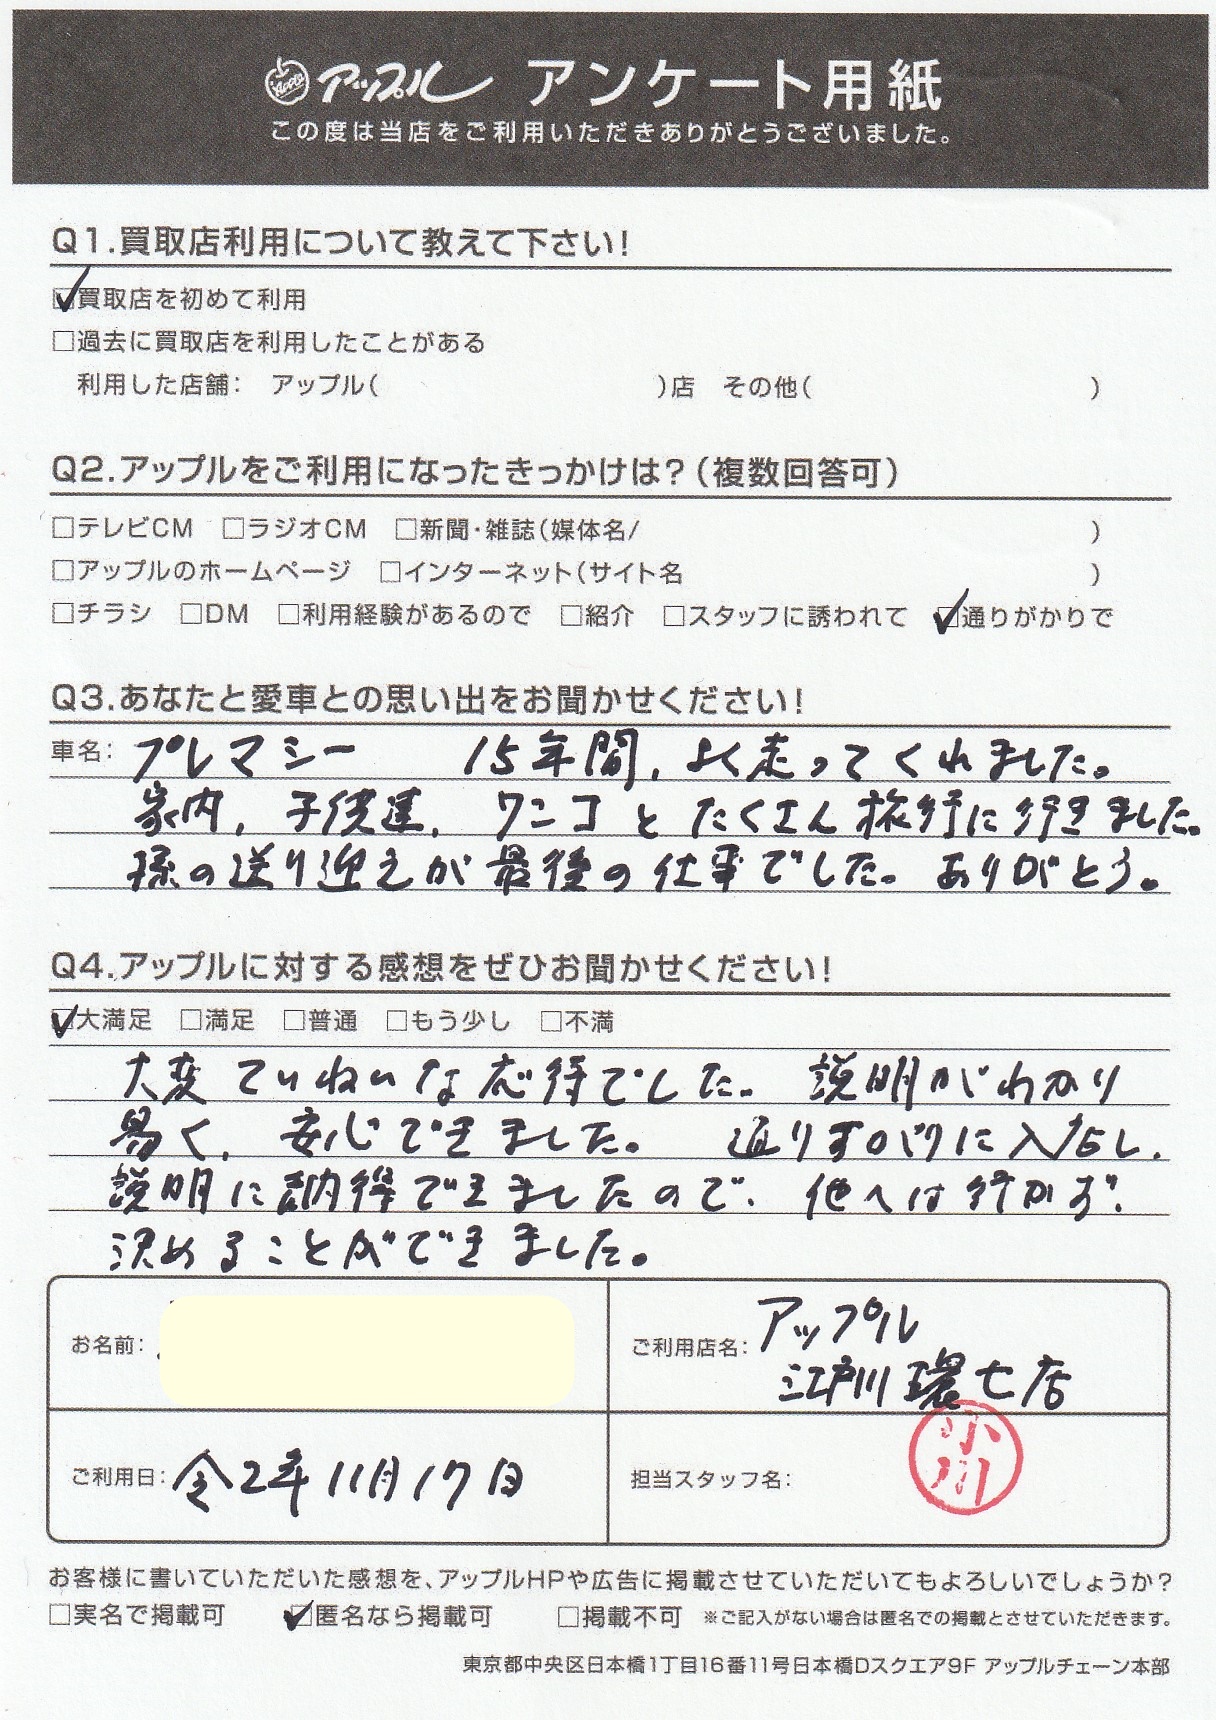 アップル アンケート用紙
この度は当店をご利用いただきありがとうございました。
Q1.買取店利用について教えて下さい!
☑買取店を初めて利用
□過去に買取店を利用したことがある
利用した店舗: アップル( )店 その他( )
Q2.アップルをご利用になったきっかけは?(複数回答可)
□テレビCM □ラジオCM □新聞・雑誌(媒体名/ )
□アップルのホームページ □インターネット(サイト名 )
□チラシ □DM □利用経験があるので □紹介 □スタッフに誘われて ☑通りがかりで
Q3.あなたと愛車との思い出をお聞かせください!
車名: プレマシー 15年間、よく走ってくれました。
家内、子供達、ワンコとたくさん旅行に行きました。
孫の送り迎えが最後の仕事でした。ありがとう。
Q4.アップルに対する感想をぜひお聞かせください!
☑大満足 □満足 □普通 □もう少し □不満
大変ていねいな応待でした。説明がわかり
易く、安心できました。通りすがりに入店し、
説明に納得できましたので、他へは行かず、
決めることができました。
お名前:
ご利用店名: アップル
江戸川環七店
ご利用日: 令2年11月17日
担当スタッフ名: 小川
お客様に書いていただいた感想を、アップルHPや広告に掲載させていただいてもよろしいでしょうか?
□実名で掲載可 ☑匿名なら掲載可 □掲載不可 ※ご記入がない場合は匿名での掲載とさせていただきます。
東京都中央区日本橋1丁目16番11号日本橋Dスクエア9F アップルチェーン本部